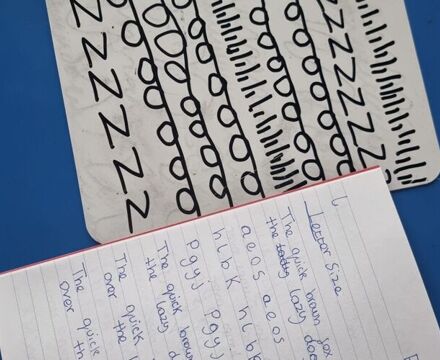 Letter Size
The quick brown fox
the lazy dog
a e o s a e o s
h l b k h l b
p g y j p g y j
The quick brown
the lazy d
The quick
over the l
The quick
over th